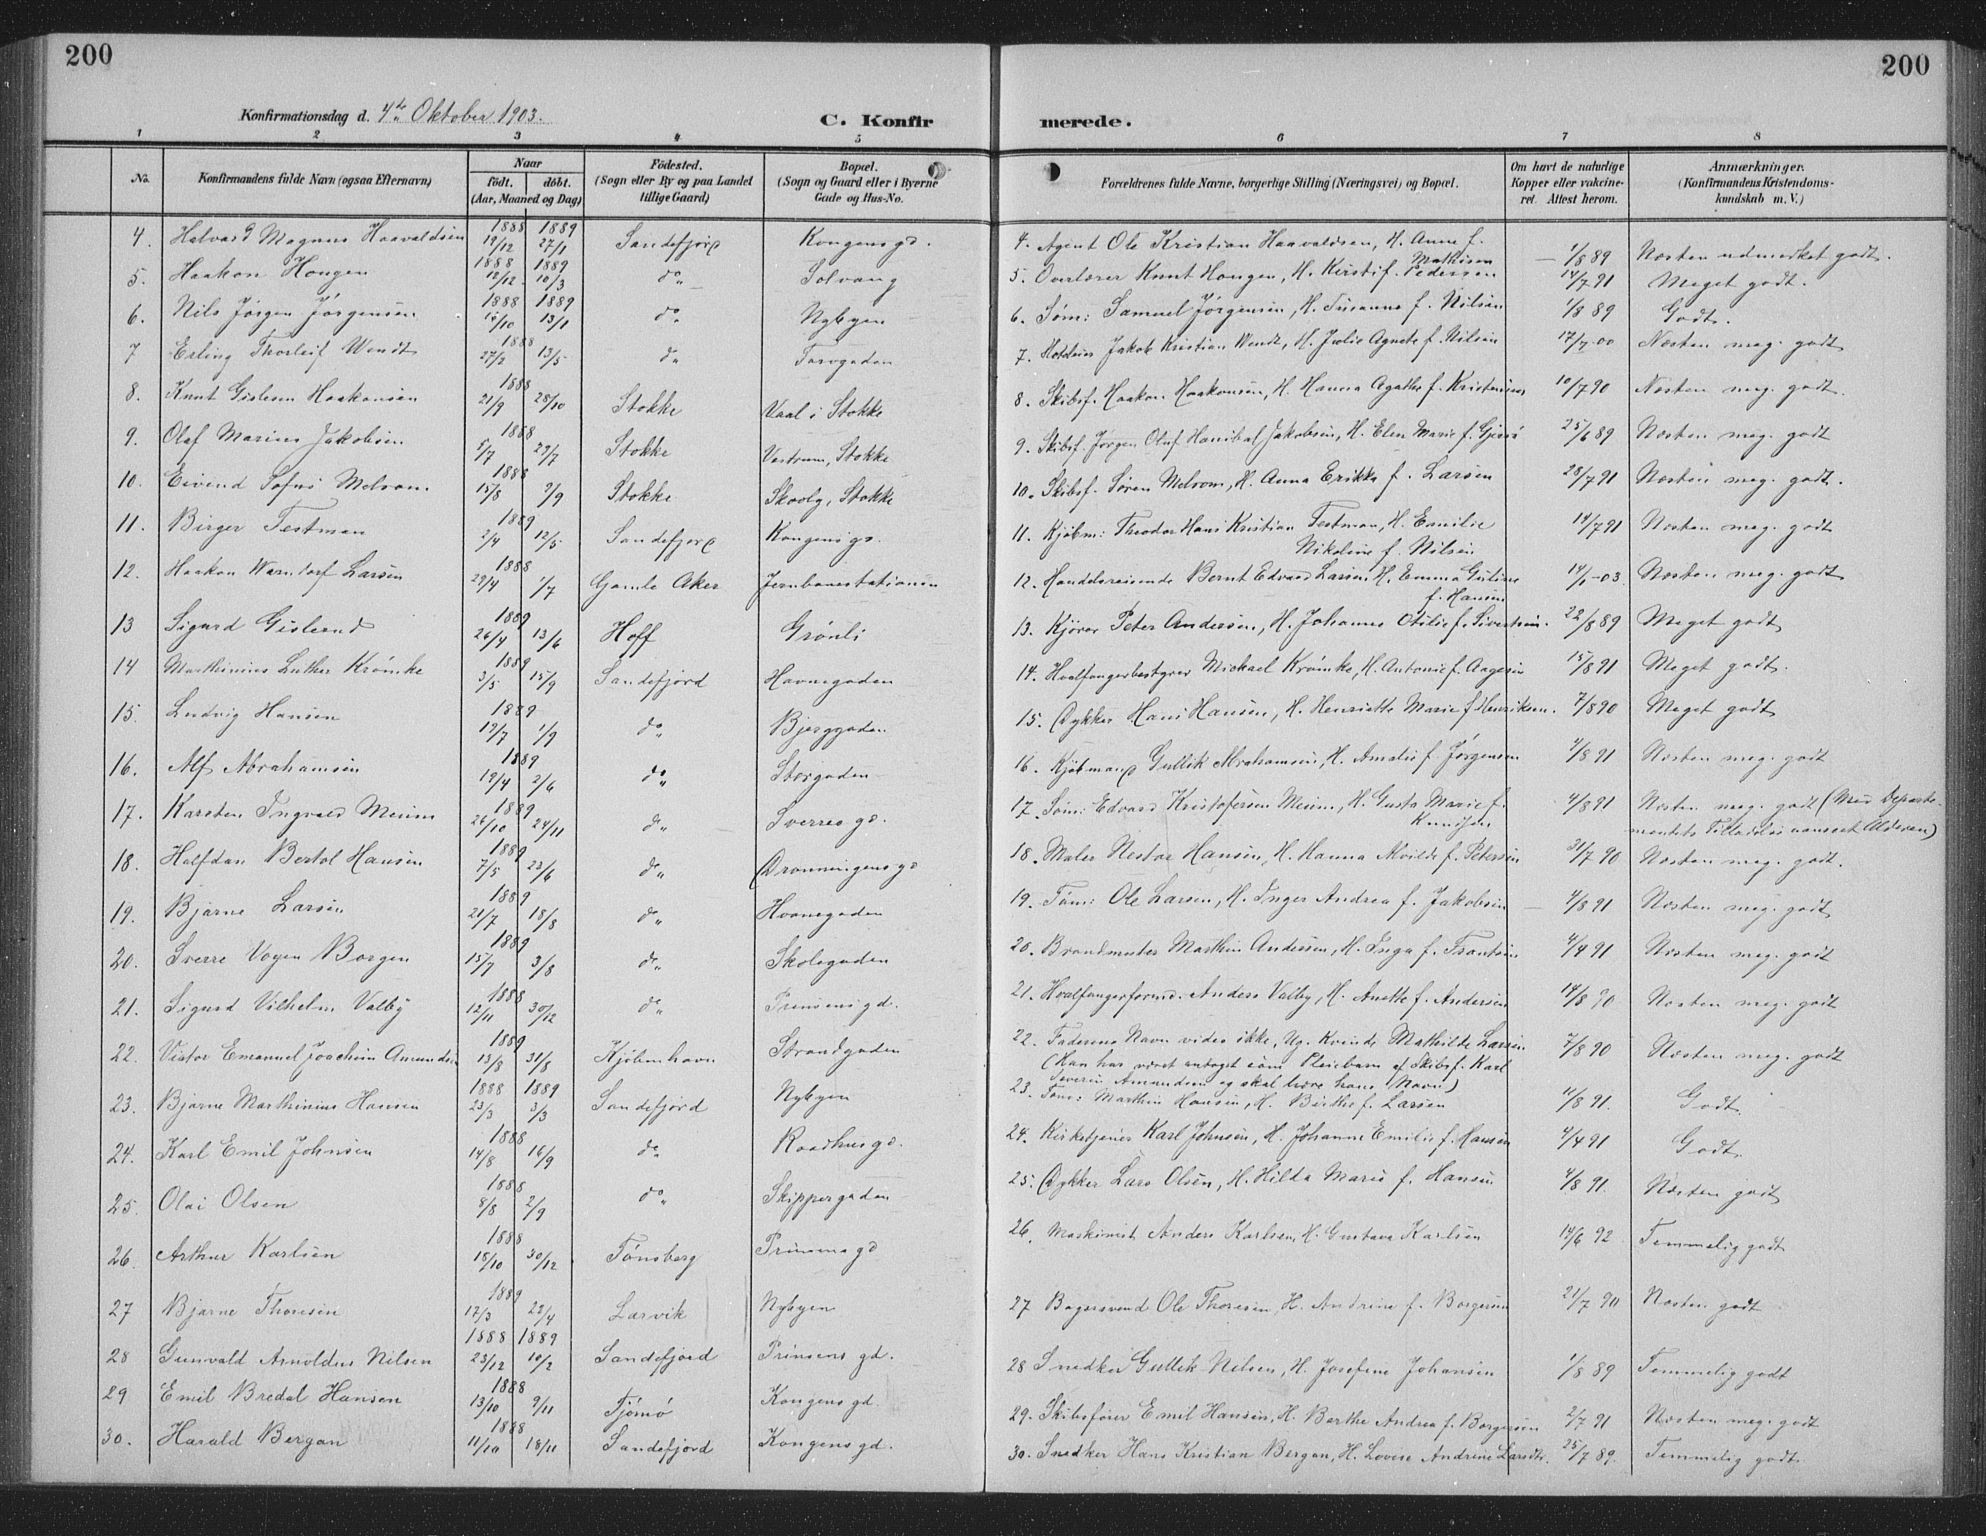 200
200
Konfirmationsdag d. 4de Oktober 1903.
C. Konfir
merede.
1 2 3 4 5 6 7 8
No. Konfirmandens fulde Navn (ogsaa Efternavn) Naar født. døbt. (Aar, Maaned og Dag) Fødested. (Sogn eller By og paa Landet tillige Gaard) Bopæl. (Sogn og Gaard eller i Byerne Gade og Hus-No. Forældrenes fulde Navne, borgerlige Stilling (Næringsvei) og Bopæl. Om havt de naturlige Kopper eller vakcineret. Attest herom. Anmærkninger. (Konfirmandens Kristendomskundskab m. V.)
4. Halvard Magnus Haavaldsen 1888 19/12 1889 27/1 Sandefjord Kongensgd. 4. Agent Ole Kristian Haavaldsen, H. Anne f. Mathisen 1/8 89 Næsten udmerket godt.
5. Haakon Hougen 1888 12/12 1889 10/3 do Solvang 5. Overlærer Knut Hougen, H. Kirsti f. Pedersen 14/7 91 Meget godt.
6. Nils Jørgen Jørgensen 1888 1889 13/1 do Nybyen 6. Søm: Samuel Jørgensen, H. Susanne f. Nilsen 1/8 89 Godt.
7 Erling Thorleif Wendt 1888 27/2 13/5 do Torvgaden 7. Jakob Kristian Wendt, H. Julie Agnete f. Nilsen 17/7 00 Næsten meg. godt
8. Knut Gislesen Haakonsen 1888 21/9 28/10 Stokke Vaal i Stokke 8. Skibsf. Haakon Haakonsen, H. Hanna Agathe f. Kristensen 10/7 90 Næsten meg. godt.
9. Olaf Marius Jakobsen 1888 5/7 29/7 Stokke Vestrum, Stokke 9. Skibsf. Jørgen Oluf Hanibal Jakobsen, H. Elen Marie f. 25/6 89 Næsten meg. godt
10. Eivend Sofus Melsom 1888 15/8 9/9 Stokke Stokke 10. Skibsf. Søren Melsom, H. Anna Erikka f. Larsen 28/7 91 Næsten meg. godt.
11. Birger Testman 1889 2/4 12/5 Sandefjord Kongensgd. 11. Kjøbm: Theodor Hans Kristian Testman, H. Emilie Nikoline f. Nilsen 14/7 91 Næsten meg. godt
12. Haakon Warndorf Larsen 1888 29/4 1/7 Gamle Aker Jernbanestationen 12. Handelsreisende Bernt Edvard Larsen, H. Emma Gutine f. Hansen 14/1-03. Næsten meg. godt
13 Sigurd Gislerud 1889 26/4 13/6 Hoff Grønli 13. Kjører Peter Andersen, H. Johanne Otilie f. Sivertsen. 22/8 89 Meget godt
14 Marthinius Luther Krømke 1889 3/5 15/9 Sandefjord Havnegaden 14. Hvalfangerbestyrer Mickael Krømke, H. Antonie f. Aagesen 15/8 91 Meget godt.
15. Ludvig Hansen 1889 12/7 1/9 do Bjerggaden 15. Dykker Hans Hansen, H. Henriette Marie f. Henriksen. 7/8 90 Meget godt
16. Alf Abrahamsen 1889 19/4 2/6 do Storgaden 16. Kjøbmand Gullik Abrahamsen, H. Amalie f. Jørgensen 4/8 91 Næsten meg. godt
17. Karsten Ingvald Meium 1889 26/10 24/11 do Sverresgd. 17. Søm: Edvard Kristofersen Meium, H. Gusta Marie f. Knudsen 4/8 91 Næsten meg. godt (Med Departementets Tilladelse uanseet Alderen)
18. Halfdan Bertol Hansen 1889 7/5 23/6 do Dronningensgd 18. Maler Nestor Hansen, H. Hanna Alvilde f. Petersen 31/7 90 Næsten meg. godt.
19. Bjarne Larsen 1889 21/7 18/8 do Havnegaden 19. Tøm: Ole Larsen, H. Inger Andrea f. Jakobsen 4/8 91 Næsten meg. godt
20. Sverre Vogen Borgen 1889 15/7 3/8 do Skolegaden 20. Brandmester Marthin Andersen, H. Inga f. Frantsen 4/4 91 Næsten meg. godt
21. Sigurd Vilhelm Valby 1888 12/11 30/12 do Prinsensgd. 21. Hvalfangerformd. Anders Valby, H. Anette f. Andersen 14/8 90 Næsten meg. godt
22. Victor Emanuel Joachim Amundsen 1889 13/8 31/8 Kjøbenhavn Strandgaden 22. Faderens Navn vides ikke, Ug. Kvinde Mathilde Larsen (Han har været antaget som Pleiebarn af Skibsf. Karl Severin Amundsen og skal bære hans Navn) 7/8 90 Næsten meg. godt
23. Bjarne Marthinius Hansen 1888 23/3 1889 3/3 Sandefjord Nybyen 23. Tøm: Marthin Hansen, H. Birthe f. Larsen 11/8 91. Godt
24. Karl Emil Johnsen 1888 14/8 16/9 do Raadhusgd. 24. Kirketjener Karl Johnsen, H. Johanne Emilie f. Hansen 4/4 91 Godt
25. Olai Olsen 1888 8/8 2/9 do Skippergaden 25. Dykker Lars Olsen, H. Hilda Marie f. Hansen 4/8 91. Næsten godt
26 Arthur Karlsen 1888 18/10 30/12 Tønsberg Prinsensgd 26. Maskinist Anders Karlsen, H. Gustava Karlsen 14/6 92 Temmelig godt
27 Bjarne Thoresen 1889 12/3 22/4 Larvik Nybyen 27 Bagersvend Ole Thoresen, H. Andrine f. Borgersen 21/7 90 Næsten godt
28 Gunvald Arnoldus Nilsen 1888 23/12 1889 10/2 Sandefjord Prinsens gd. 28 Snedker Gullik Nilsen, H. Josefine Johansen 1/8 89 Temmelig godt
29 Emil Bredal Hansen 1888 13/10 9/11 Tjømø Kongens gd. 29. Skibsfører Emil Hansen, H. Berthe Andrea f. Borgersen 2/7 91 Næsten meg. godt
30. Harald Bergan 1888 11/10 18/11 Sandefjord Kongens gd. 30. Snedker Hans Kristian Bergan, H. Lovise Andrine 25/7 89. Temmelig godt.